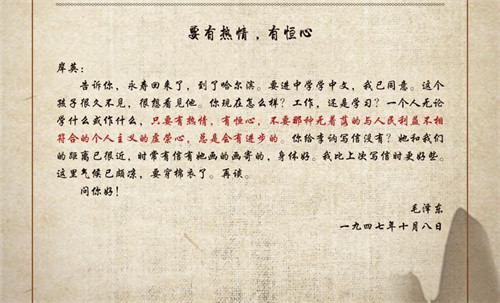 要有热情，有恒心
岸英：
告诉你，永寿回来了，到了哈尔滨。要进中学学中文，我已同意。这个
孩子很久不见，很想看见他。你现在怎么样？工作，还是学习？一个人无论
学什么或作什么，只要有热情，有恒心，不要那种无着落的与人民利益不相
符合的个人主义的虚荣心，总是会有进步的。你给李讷写信没有？她和我们
的距离已很近，时常有信有她画的画寄的，身体好。我比上次写信时更好些。
这里气候已颇凉，要穿棉衣了。再谈。
问你好！
毛泽东
一九四七年十月八日